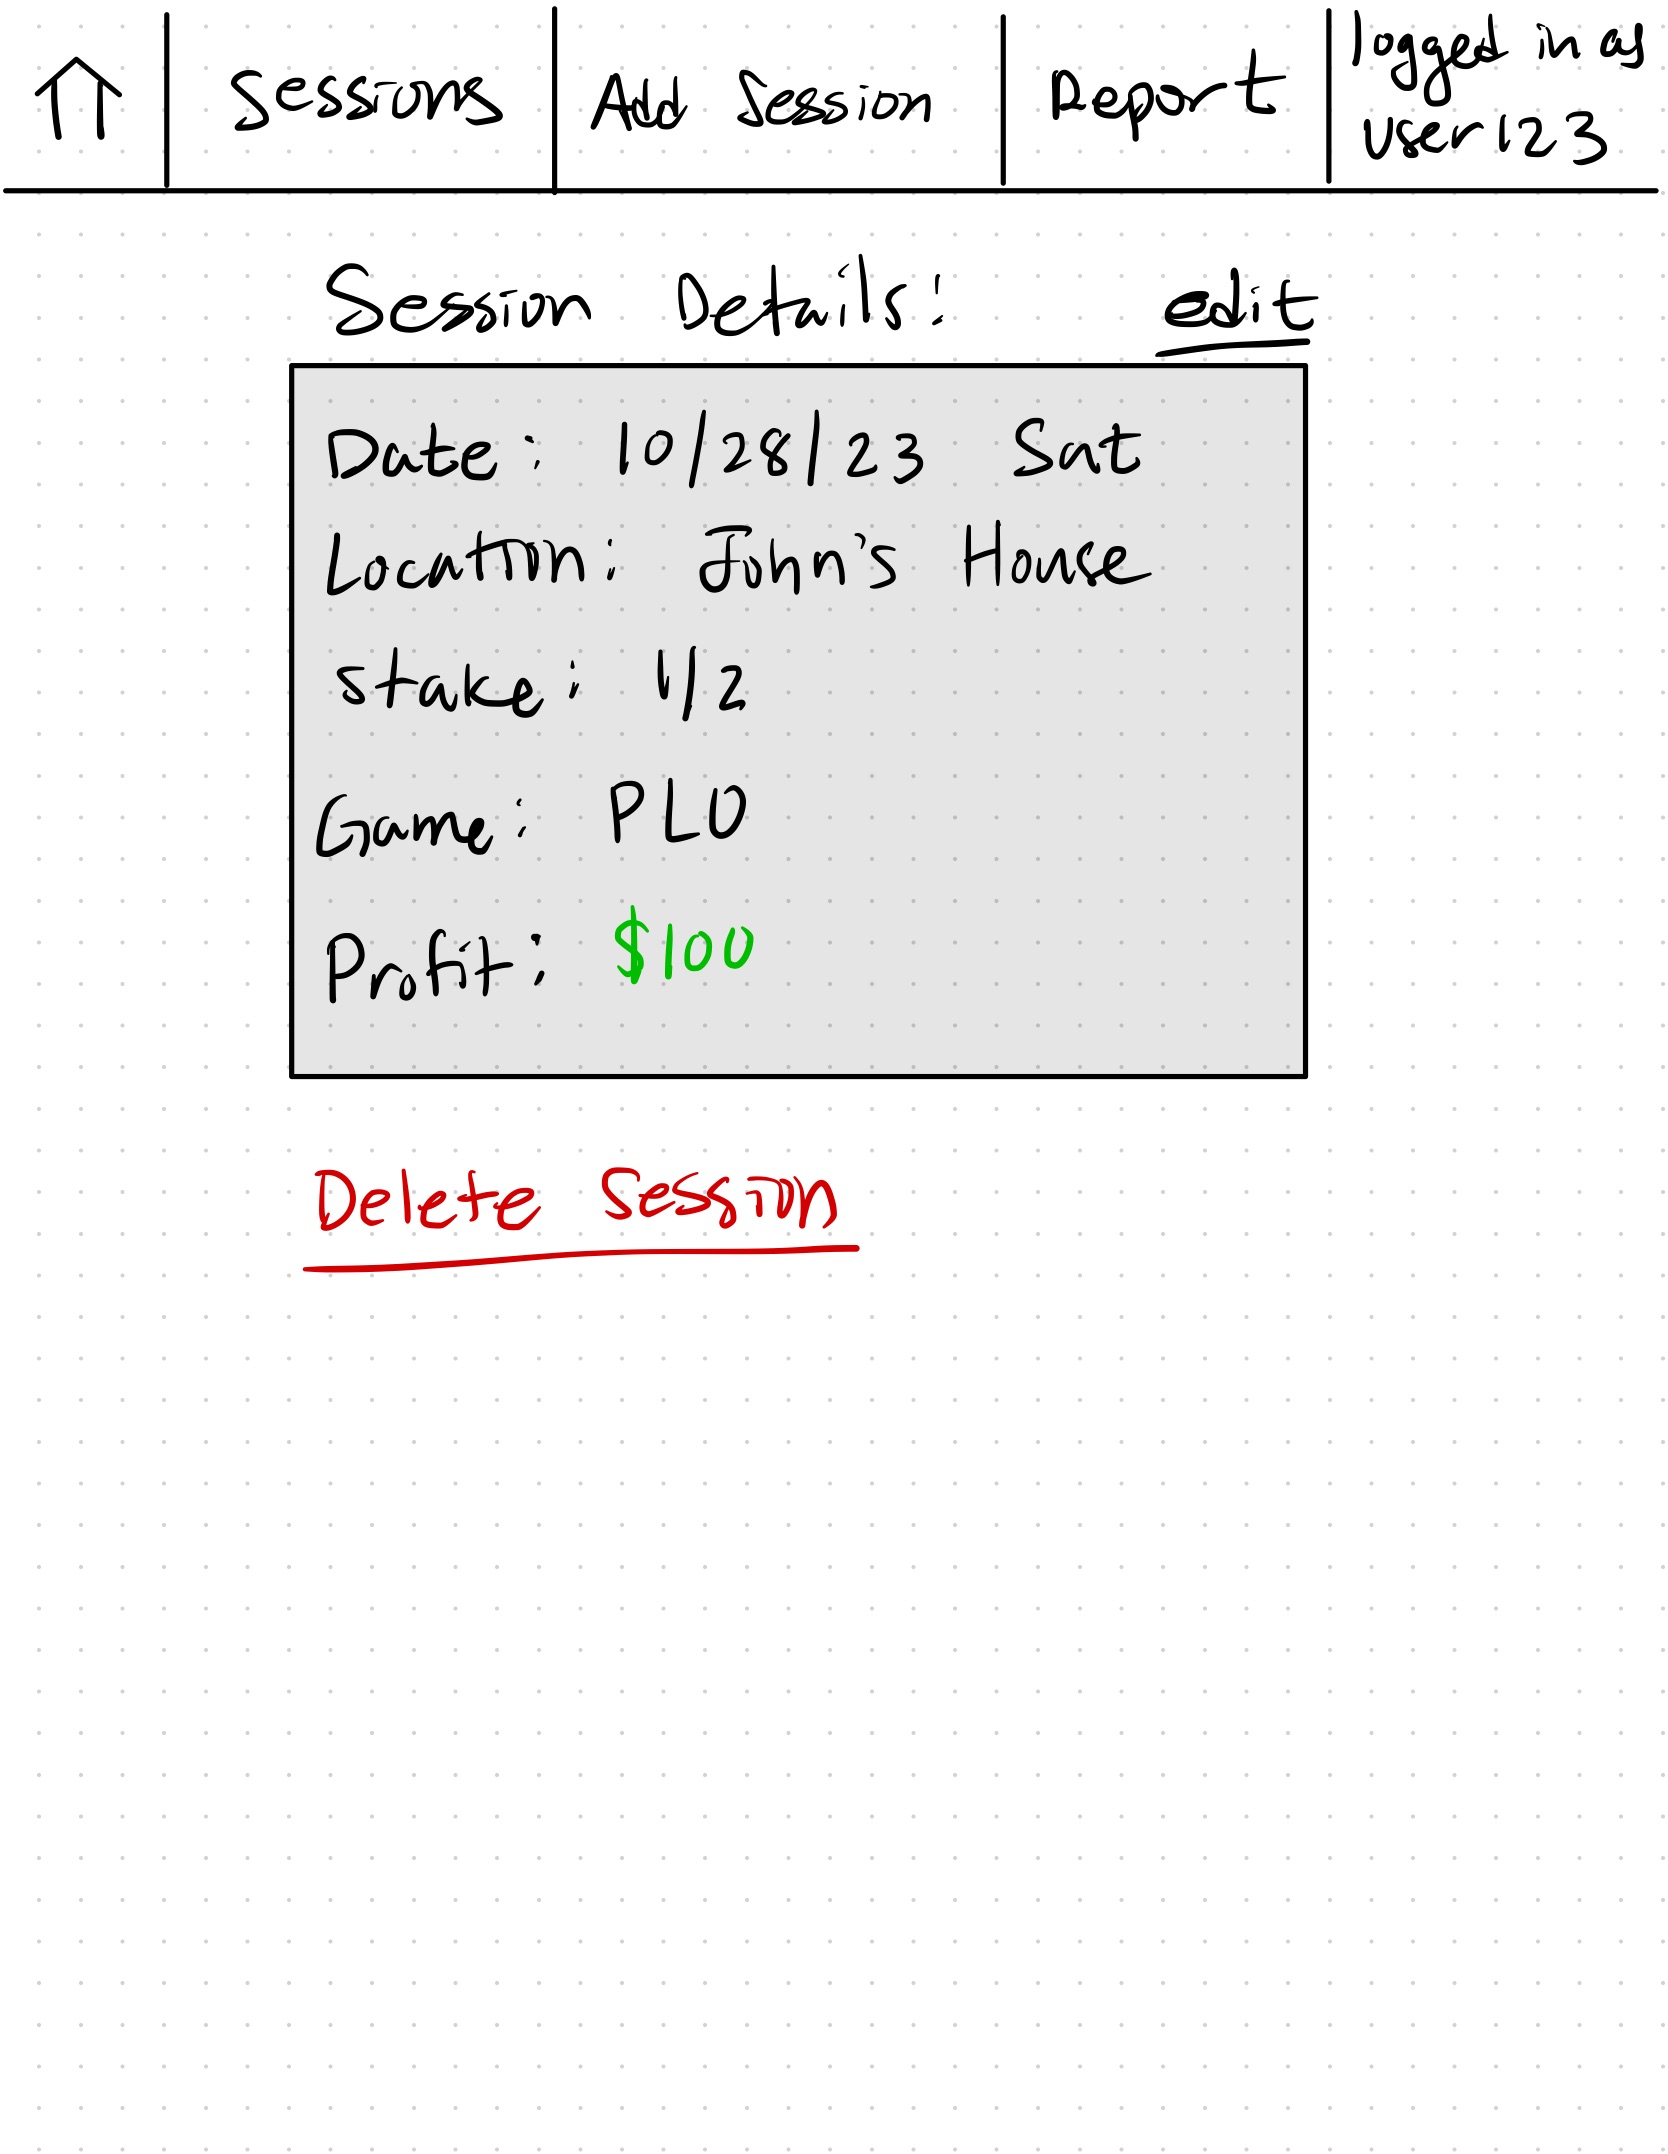 Sessions
Add Session
Report
logged in as
user123
Session Details: edit
Date: 10/28/23 Sat
Location: John's House
Stake: 1/2
Game: PLO
Profit: $100
Delete Session